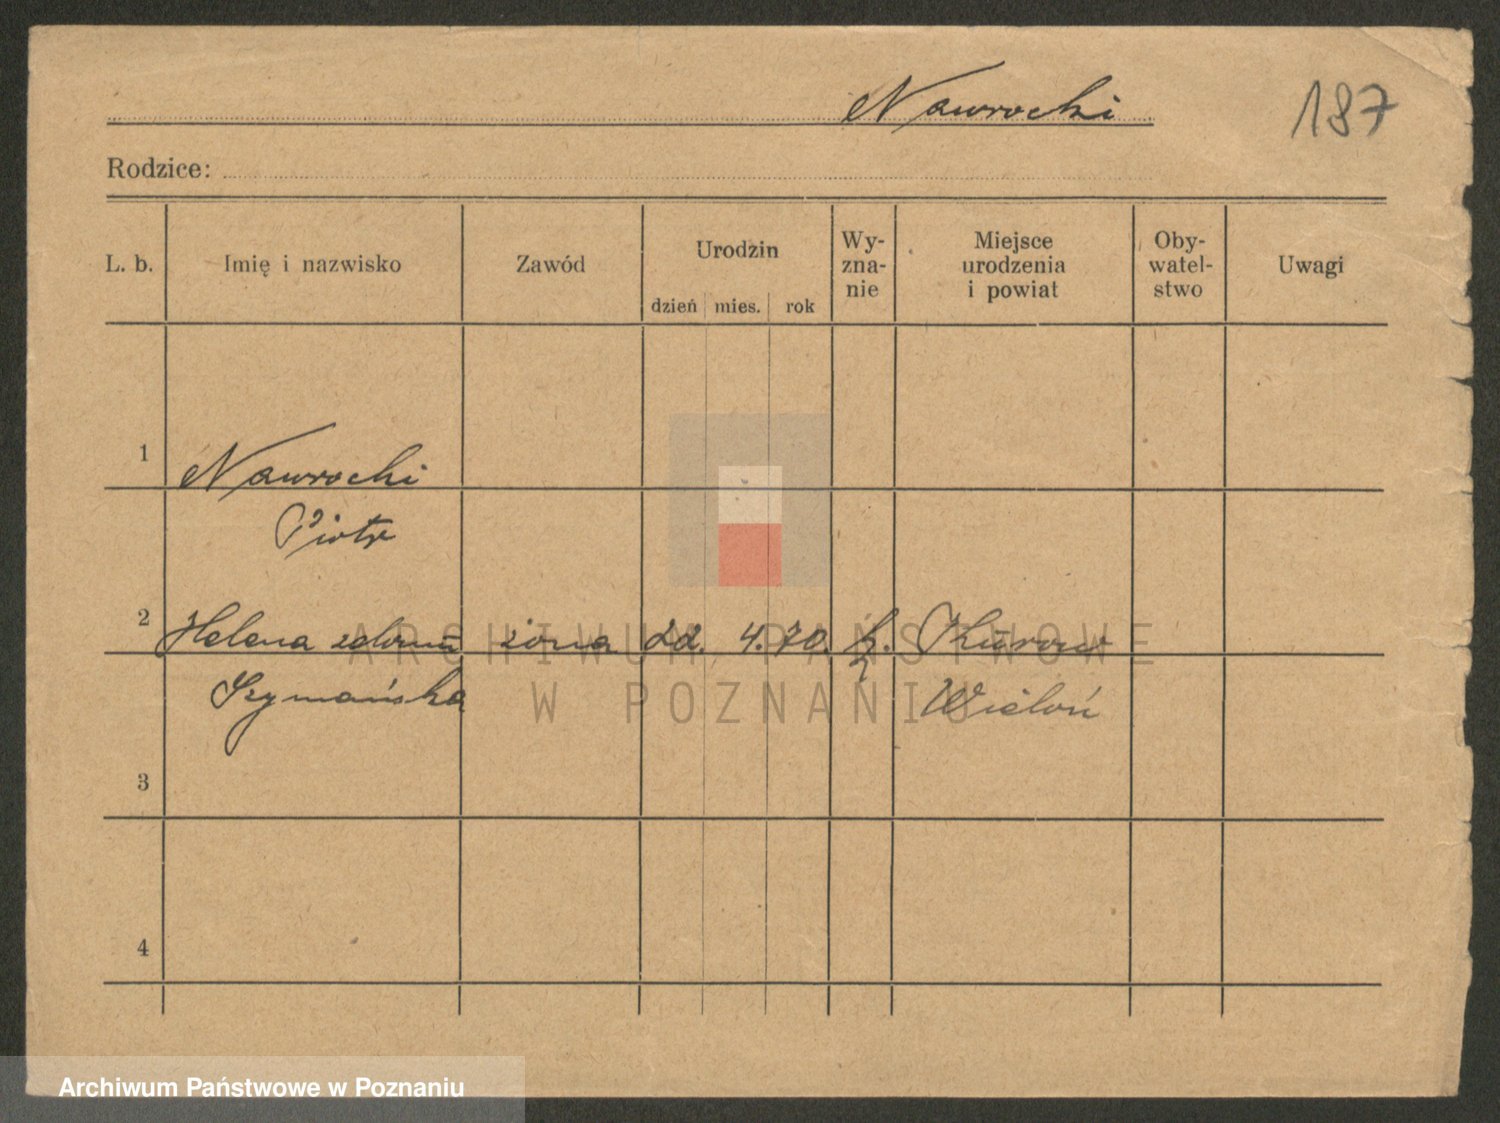 Nawrocki
187
Rodzice:
L. b.
Imię i nazwisko
Zawód
Urodzin
dzień mies. rok
Wy-
zna-
nie
Miejsce
urodzenia
i powiat
Oby-
watel-
stwo
Uwagi
1 Nawrocki
Piotr
2 Helena żona 22. 4. 70.
Szymańska Wieluń
3
4
ARCHIWUM PAŃSTWOWE
W POZNANIU
Archiwum Państwowe w Poznaniu